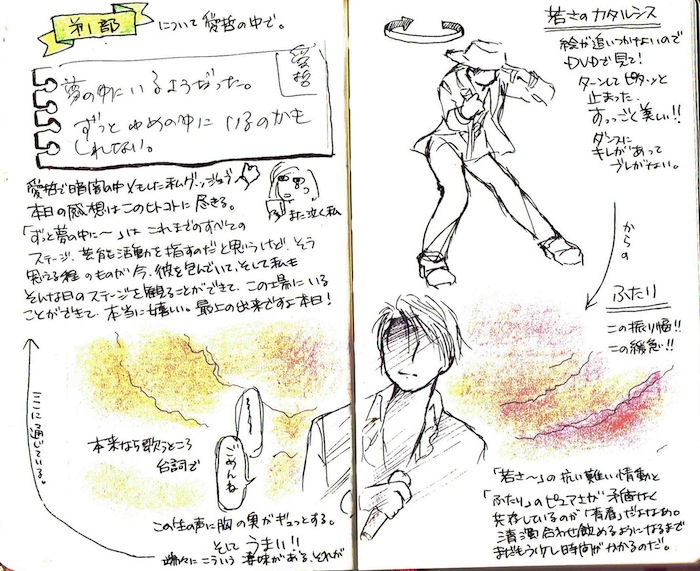 第1部
について 愛哲の中で。
愛哲
夢の中にいるようだった。
ずっとゆめの中にいるのかも
しれない。
愛哲で暗闇の中
本日の感想はこのヒトコトに尽きる。
また泣く私
「ずっと夢の中に〜」は これまでのすべての
ステージ、芸能活動を指すのだと思うけど、そう
思える程のものが今、彼を包んでいて、そして私も
そんな日のステージを観ることができて、この場にいる
ことができて、本当に嬉しい。最上の出来ですよ本日!
ここに通じている。
本来なら歌うところ
台詞で
ごめんね
この生の声に胸の奥がギュっとする。
そして うまい!!
こういう 凄味がある。それが
若さのカタルシス
絵が追いつかないので
DVDで見て!
ターンしてピタッと
止まった。
すっっごと美しい!!
ダンスに
キレがあって
ブレがない。
からの
ふたり
この振り幅!!
この緩急!!
「若さ〜」の抗い難い情動と
「ふたり」のピュアさが矛盾なく
共存しているのが「青春」だよなあ。
清濁合わせ飲めるようになるまで
まだもう少し時間がかかるのだ。